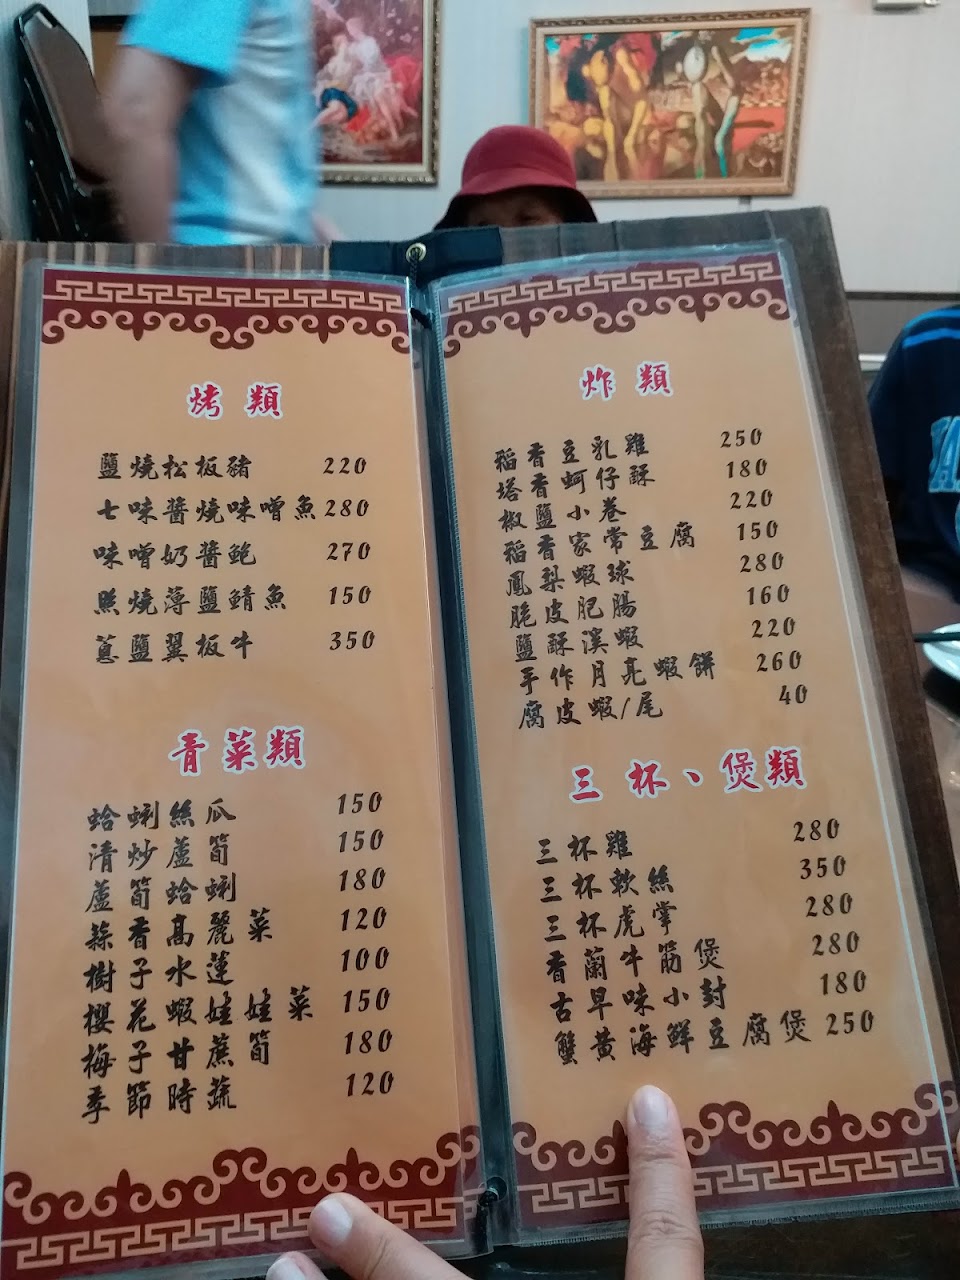 烤類
鹽燒松板豬 220
七味醬燒味噌魚 280
味噌奶醬鮑 270
照燒薄鹽鯖魚 150
蔥鹽翼板牛 350
青菜類
蛤蜊絲瓜 150
清炒蘆筍 150
蘆筍蛤蜊 180
蒜香高麗菜 120
樹子水蓮 100
櫻花蝦娃娃菜 150
梅子甘蔗筍 180
季節時蔬 120
炸類
稻香豆乳雞 250
塔香蚵仔酥 180
椒鹽小卷 220
稻香家常豆腐 150
鳳梨蝦球 280
脆皮肥腸 160
鹽酥溪蝦 220
手作月亮蝦餅 260
腐皮蝦/尾 40
三杯、煲類
三杯雞 280
三杯軟絲 350
三杯虎掌 280
香蘭牛筋煲 280
古早味小封 180
蟹黃海鮮豆腐煲 250